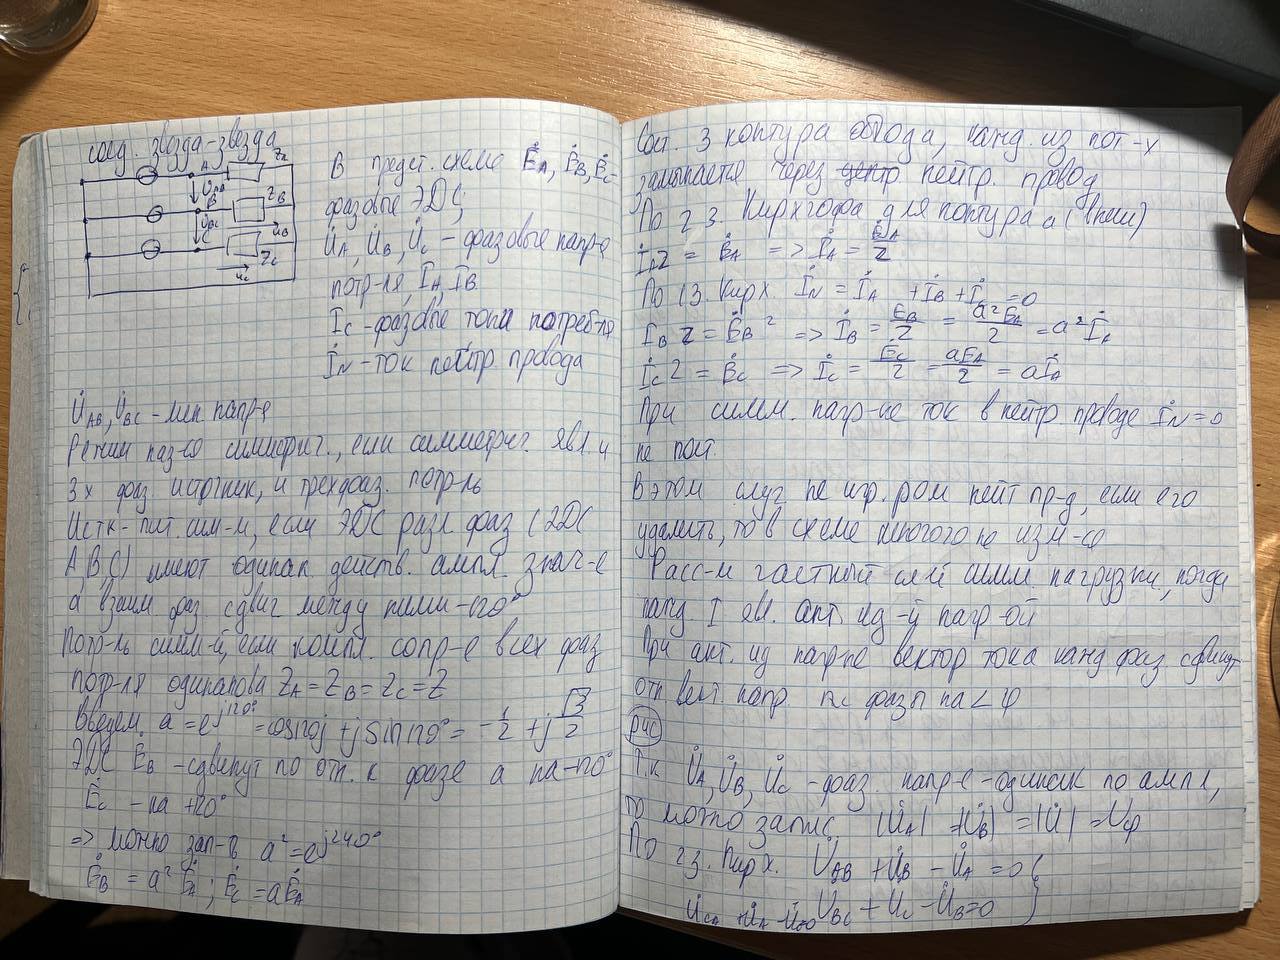 соед. звезда-звезда
A
Z_A
U̇_AB
B
Z_B
U̇_BC
U_B
C
Z_C
U_C
В предст. схеме Ė_A, Ė_B, Ė_C -
фазовые ЭДС;
U̇_A, U̇_B, U̇_C – фазовые напр-е
потр-ля, İ_A İ_B
İ_C – фазовые токи потреб-ля
İ_N – ток нейтр. провода
U̇_AB, U̇_BC – лин напр-е
Режим наз-ся симметрич., если симметрич. явл. и
3х фаз. источник, и трехфаз. потр-ль
Истк- пит. сим-м, если ЭДС разл фаз (ЭДС
A, B, C) имеют одинак. действ. ампл. знач-е
а взаим. фаз. сдвиг между ними – 120°
Потр-ль симм-й, если компл. сопр-е всех фаз
потр-ля одинаково Z_A = Z_B = Z_C = Z
Введем. a = e^j120° = cos120j + j sin 120° = -1/2 + j √3/2
ЭДС Ė_B – сдвинут по отн. к фазе a на -120°
Ė_C – на +120°
=> можно зап-ть a² = e^j240°
Ė_B = a² Ė_A ; Ė_C = aĖ_A
Сост. 3 контура обхода, кажд. из кот-х
замыкается через нейтр. провод
По 2 з. Кирхгофа для контура a (внеш)
İ_A Z = Ė_A => İ_A = Ė_A/Z
По 1 з. Кирх. İ_N = İ_A + İ_B + İ_C = 0
İ_B Z = Ė_B => İ_B = Ė_B/Z = a² Ė_A/Z = a² İ_A
İ_C Z = Ė_C => İ_C = Ė_C/Z = aĖ_A/Z = aİ_A
При симм. нагр-ке ток в нейтр. проводе İ_N = 0
В этом случ не игр. роли нейт пр-д, если его
удалить, то в схеме ничего не изм-ся
Расс-м частный случай симм нагрузки, когда
кажд. I явл. акт. инд-й нагр-ой
При акт. инд нагр-ке вектор тока кажд фаз сдвинут
отн вект напр. фазы на ∠φ
рис
Т.к U̇_A, U̇_B, U̇_C – фаз. напр-е – одинак по ампл,
то можно запис. |U̇_A| = |U̇_B| = |U̇| = U_φ
По 2 з. Кирх. U̇_AB + U̇_B - U̇_A = 0
U̇_BC + U̇_C - U̇_B = 0
U̇_CA + U̇_A - U̇_C = 0